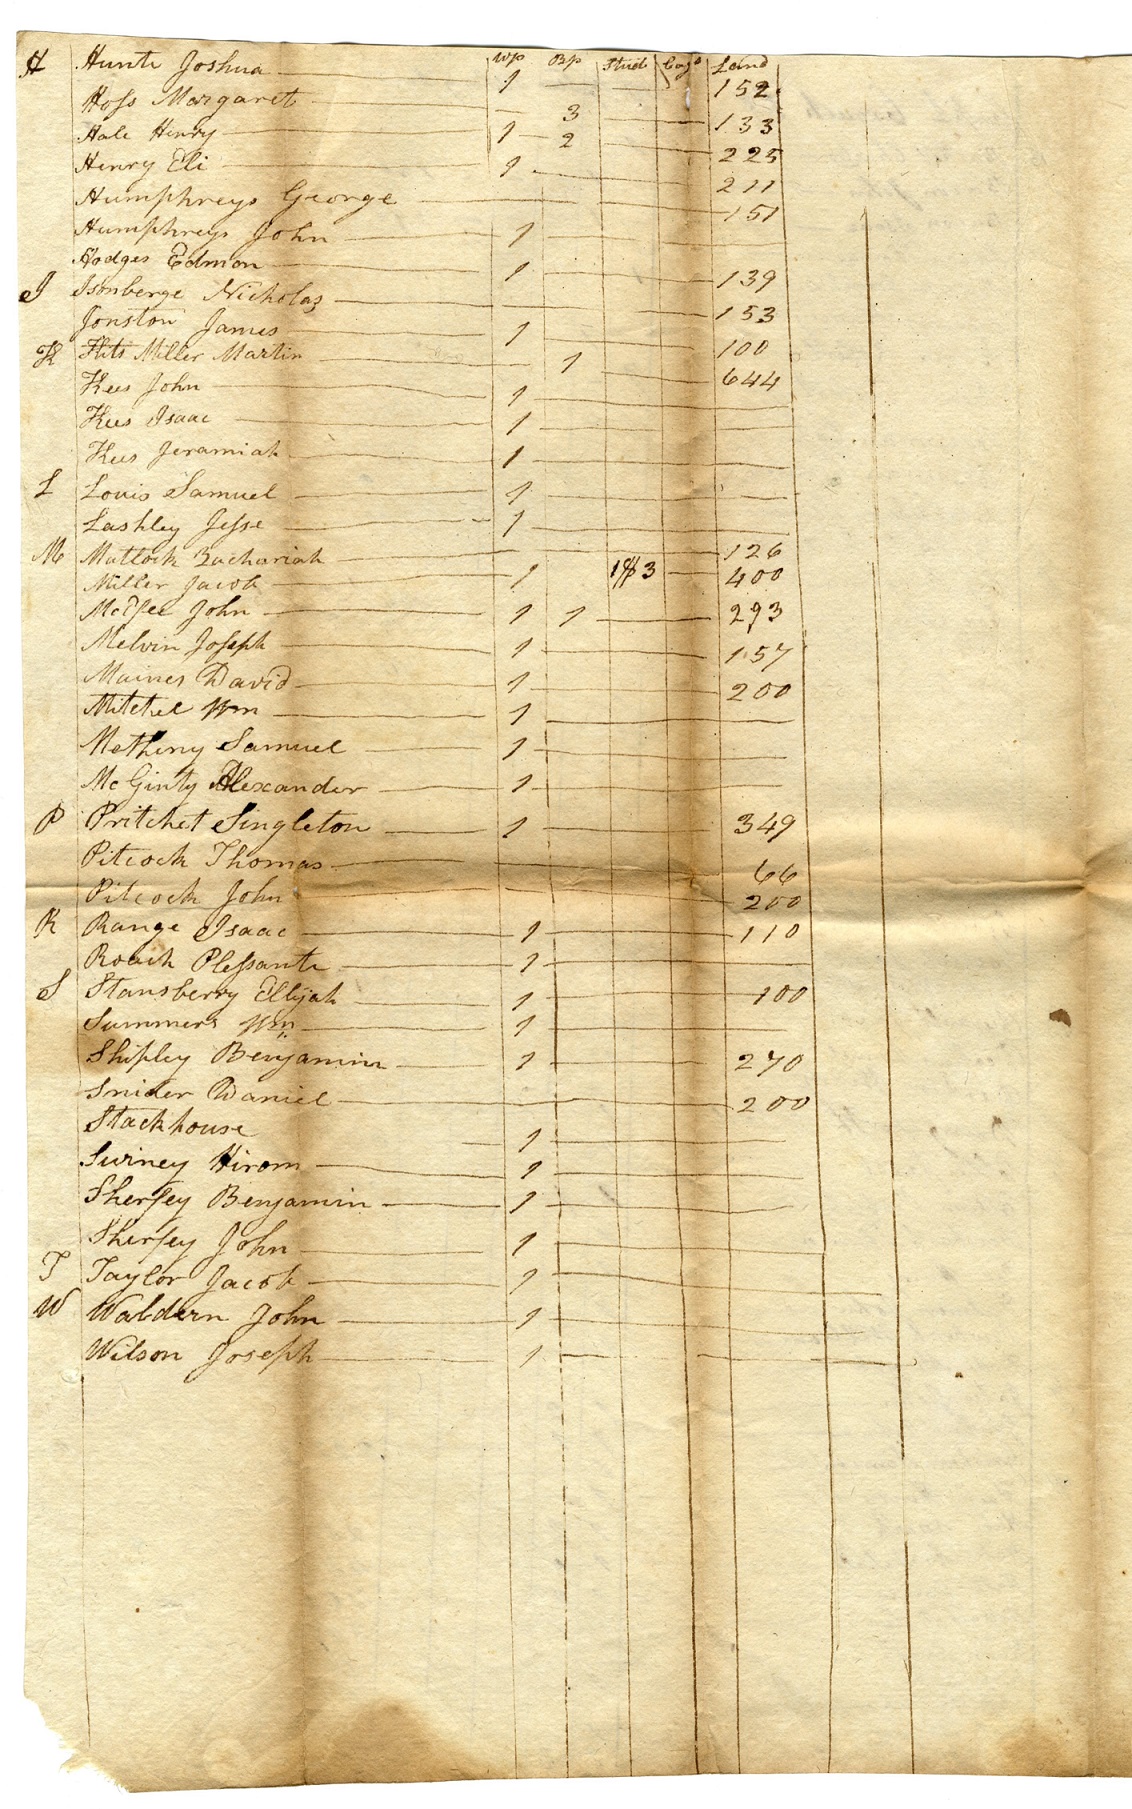 Wp Bp Stud Cags Land
H Hunte Joshua 1 152
Hoss Margaret 3 133
Hale Henry 1 2 225
Henry Eli 1 211
Humphreys George 151
Humphreys John 1
Hodges Edmon 1 139
I Isonberge Nicholas 153
Jonston James 1 100
K Kits Miller Martin 1 644
Kees John 1
Kees Isaac 1
Kees Jeramiah 1
L Louis Samuel 1
Lashley Jesse 1
M Matlock Zachariah 126
Miller Jacob 1 1 $ 3 400
McFee John 1 1 293
Melvin Joseph 1 157
Maines David 1 200
Mitchel Wm 1
Metheny Samuel 1
McGinty Alexander 1
P Pritchet Singleton 1 349
Pitcock Thomas 66
Pitcock John 200
R Range Isaac 1 110
Roach Plessante 1
S Stansberry Ellijah 1 100
Summers Wm 1
Shipley Benjamin 1 270
Snider Daniel 200
Stackhouse 1
Swiney Hirom 1
Sherfey Benjamin 1
Sherfey John 1
T Taylor Jacob 1
W Waldern John 1
Wilson Joseph 1